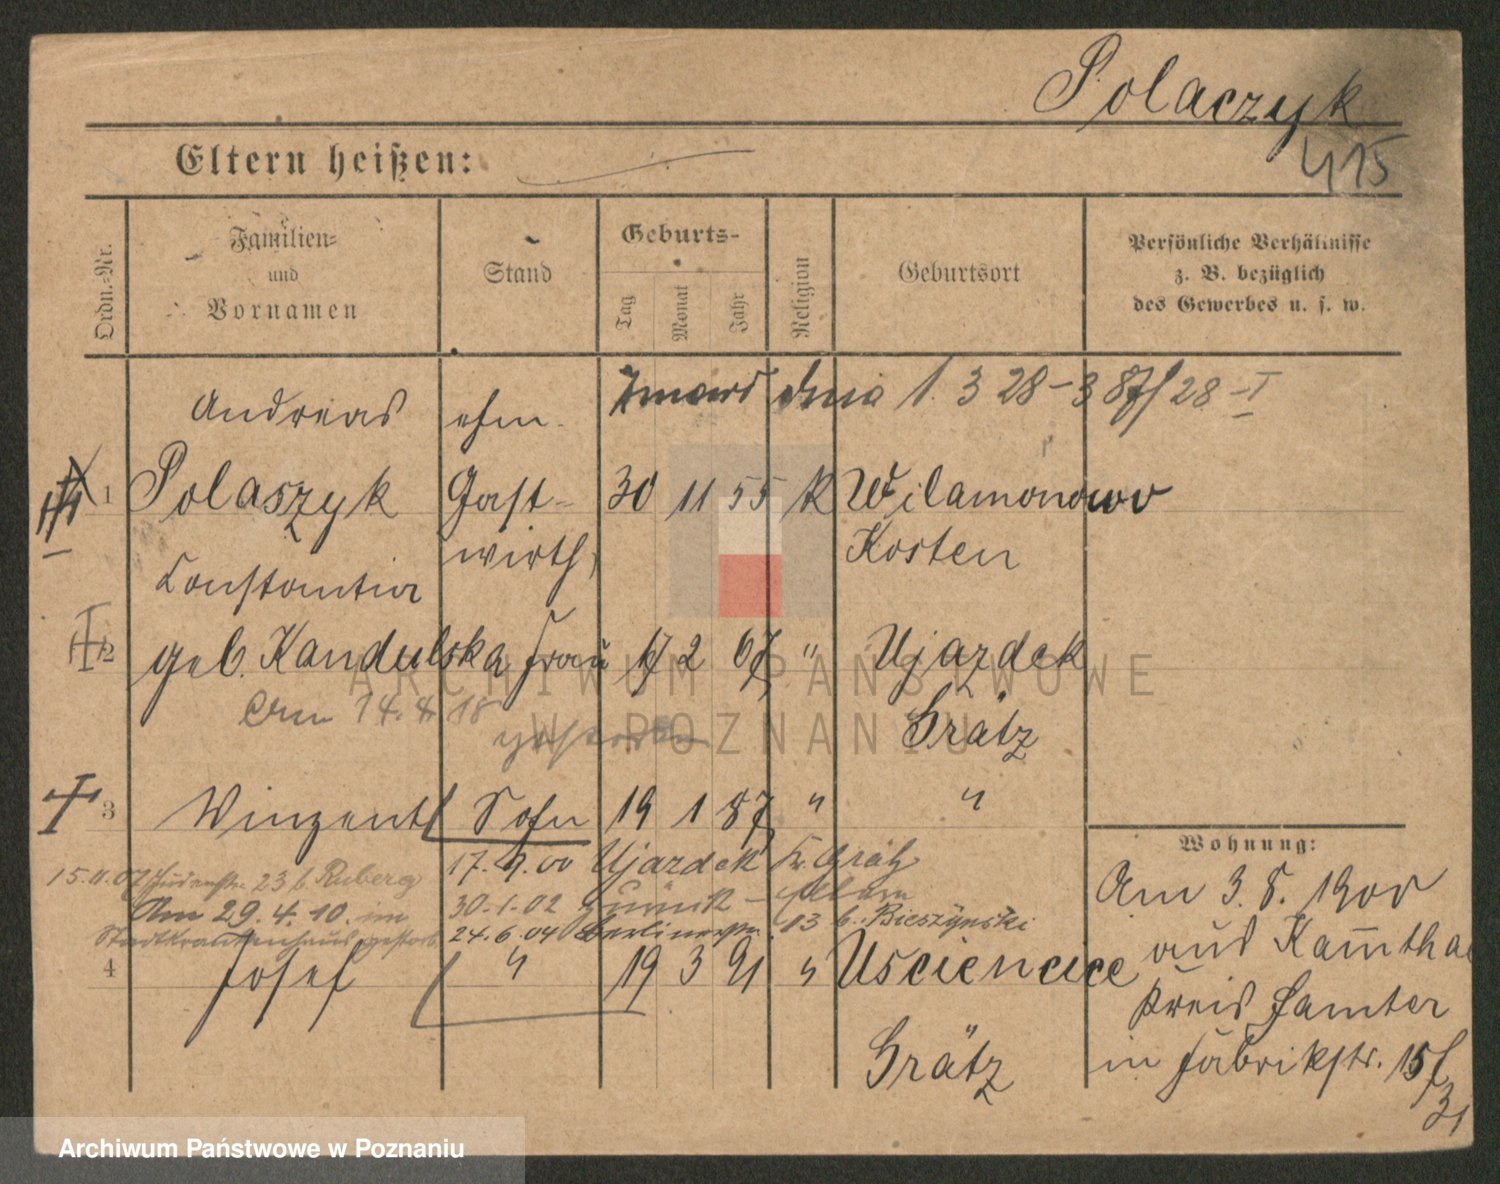 Polaczyk
415
Eltern heißen:
Ordn.-Nr.
Familien-
und
Vornamen
Stand
Geburts-
Tag
Monat
Jahr
Religion
Geburtsort
Persönliche Verhältnisse
z. B. bezüglich
des Gewerbes u. s. w.
Zmarł dnia 1. 3 28 - 387/28 - I
Andreas ehm.
1 Polaszyk Gast- 30 11 55 K Wilamonowo
wirth, Kosten
Constantia
2 geb. Kandulska Frau 17 2 67 " Ujazdek
Am 14.4.18
gestorben
Grätz
3 Winzent Sohn 19 1 87 " "
17.9.00 Ujazdek Kr. Grätz
15.11.07 23 b. Ruberg
30.1.02 zurück -
Am 29.4.10. im
24.6.04 Berlinerstr. 13 b. Bieszynski
Stadtkrankenhaus gestorb.
4 Josef " 19 3 91 " Usciencice
Grätz
Wohnung:
Am 3.8.1900
aus Kamthal
Kreis Samter
in Fabrikstr. 15/
31
ARCHIWUM PAŃSTWOWE
W POZNANIU
Archiwum Państwowe w Poznaniu